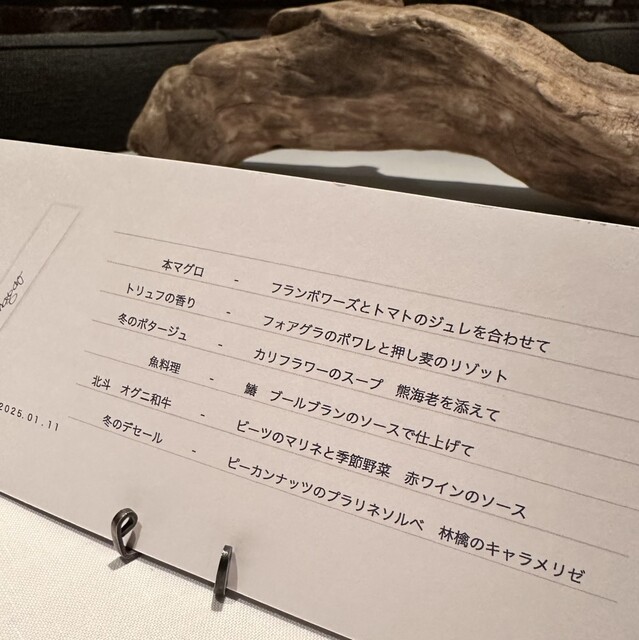 本マグロ - フランボワーズとトマトのジュレを合わせて
トリュフの香り - フォアグラのポワレと押し麦のリゾット
冬のポタージュ - カリフラワーのスープ 熊海老を添えて
魚料理 - 鰆 ブールブランのソースで仕上げて
北斗 オグニ和牛 - ビーツのマリネと季節野菜 赤ワインのソース
冬のデセール - ピーカンナッツのプラリネソルベ 林檎のキャラメリゼ
2025.01.11